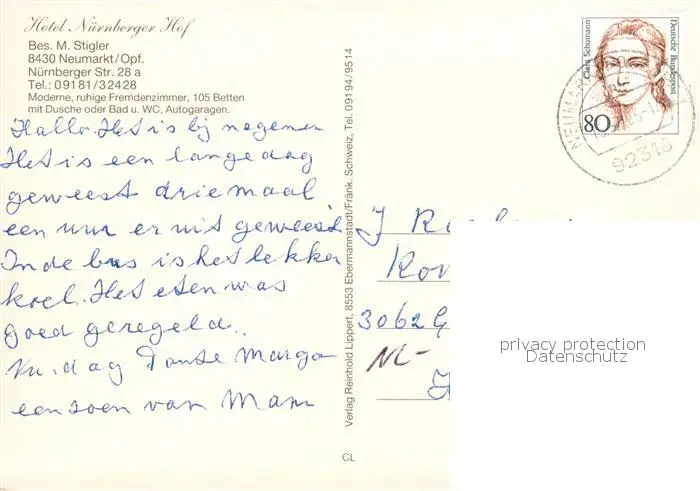 Hotel Nürnberger Hof
Bes. M. Stigler
8430 Neumarkt/Opf.
Nürnberger Str. 28 a
Tel.: 09181/32428
Moderne, ruhige Fremdenzimmer, 105 Betten
mit Dusche oder Bad u. WC, Autogaragen.
Hallo. Het is bij negenen
Het is een lange dag
geweest driemaal
een uur er uit geweest
In de bus is het lekker
koel. Het eten was
goed geregeld..
Nu. dag Tante Marga
een zoen van Mam
Verlag Reinhold Lippert, 8553 Ebermannstadt/Fränk. Schweiz, Tel. 09194/9514
CL
Clara Schumann
Deutsche Bundespost
80
92318
J
3062 G
NL-
privacy protection
Datenschutz